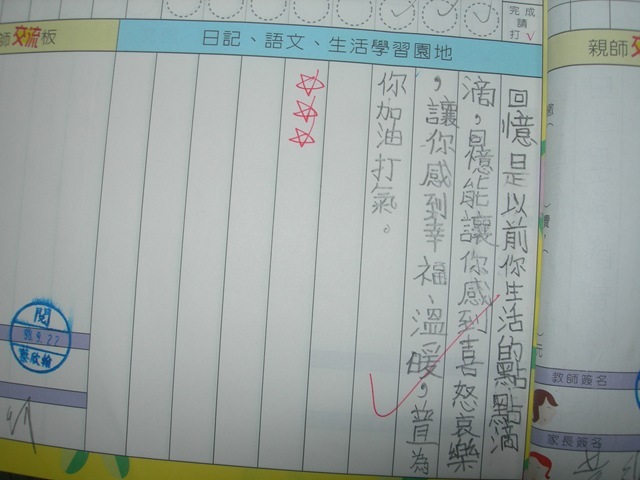 完成
請
打√
師交流板
日記、語文、生活學習園地
親師交
回憶是以前你生活的點點滴
滴，回憶能讓你感到喜怒哀樂
，讓你感到幸福、溫暖，並為
你加油打氣。
☆
☆
☆
閱
教師簽名
家長簽名